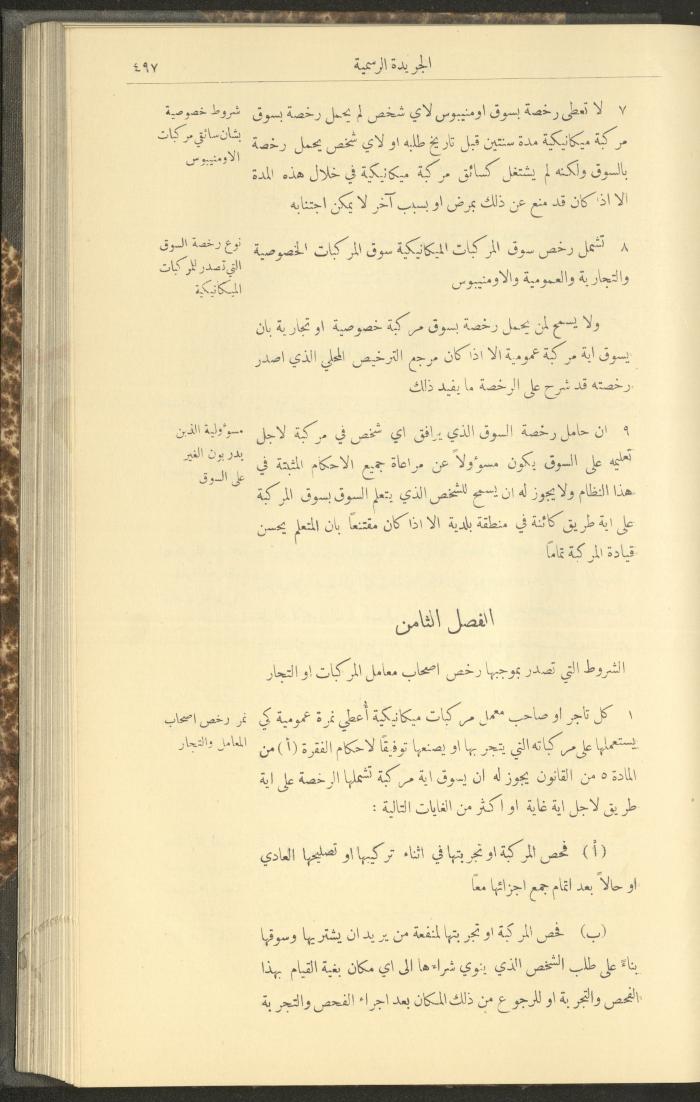 الجريدة الرسمية
٤٩٧
٧ لا تعطى رخصة بسوق اومنيبوس لاي شخص لم يحمل رخصة بسوق
مركبة ميكانيكية مدة سنتين قبل تاريخ طلبه او لاي شخص يحمل رخصة
بالسوق ولكنه لم يشتغل كسائق مركبة ميكانيكية في خلال هذه المدة
الا اذا كان قد منع عن ذلك بمرض او بسبب آخر لا يمكن اجتنابه
شروط خصوصية
بشان سائقي مركبات
الاومنيبوس
٨ تشمل رخص سوق المركبات الميكانيكية سوق المركبات الخصوصية
والتجارية والعمومية والاومنيبوس
نوع رخصة السوق
التي تصدر للمركبات
الميكانيكية
ولا يسمح لمن يحمل رخصة بسوق مركبة خصوصية او تجارية بان
يسوق اية مركبة عمومية الا اذا كان مرجع الترخيص المحلي الذي اصدر
رخصته قد شرح على الرخصة ما يفيد ذلك
٩ ان حامل رخصة السوق الذي يرافق اي شخص في مركبة لاجل
تعليمه على السوق يكون مسؤولاً عن مراعاة جميع الاحكام المثبتة في
هذا النظام ولا يجوز له ان يسمح للشخص الذي يتعلم السوق بسوق المركبة
على اية طريق كائنة في منطقة بلدية الا اذا كان مقتنعاً بان المتعلم يحسن
قيادة المركبة تماماً
مسؤولية الذين
يدربون الغير
على السوق
الفصل الثامن
الشروط التي تصدر بموجبها رخص اصحاب معامل المركبات او التجار
١ كل تاجر او صاحب معمل مركبات ميكانيكية أُعطي نمرة عمومية كي
يستعملها على مركباته التي يتجر بها او يصنعها توفيقًا لاحكام الفقرة (أ) من
المادة ٥ من القانون يجوز له ان يسوق اية مركبة تشملها الرخصة على اية
طريق لاجل اية غاية او اكثر من الغايات التالية :
نمر رخص اصحاب
المعامل والتجار
(أ) فحص المركبة او تجربتها في اثناء تركيبها او تصليحها العادي
او حالاً بعد اتمام جمع اجزائها معاً
(ب) فحص المركبة او تجربتها لمنفعة من يريد ان يشتريها وسوقها
بناءً على طلب الشخص الذي ينوي شراءها الى اي مكان بغية القيام بهذا
الفحص والتجربة او للرجوع من ذلك المكان بعد اجراء الفحص والتجربة